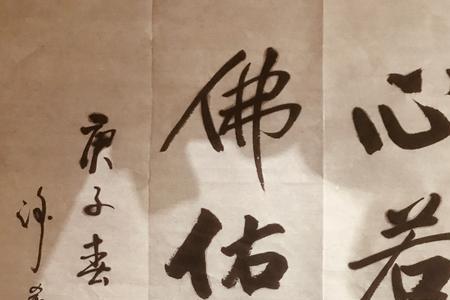 心若
佛佑
庚子春